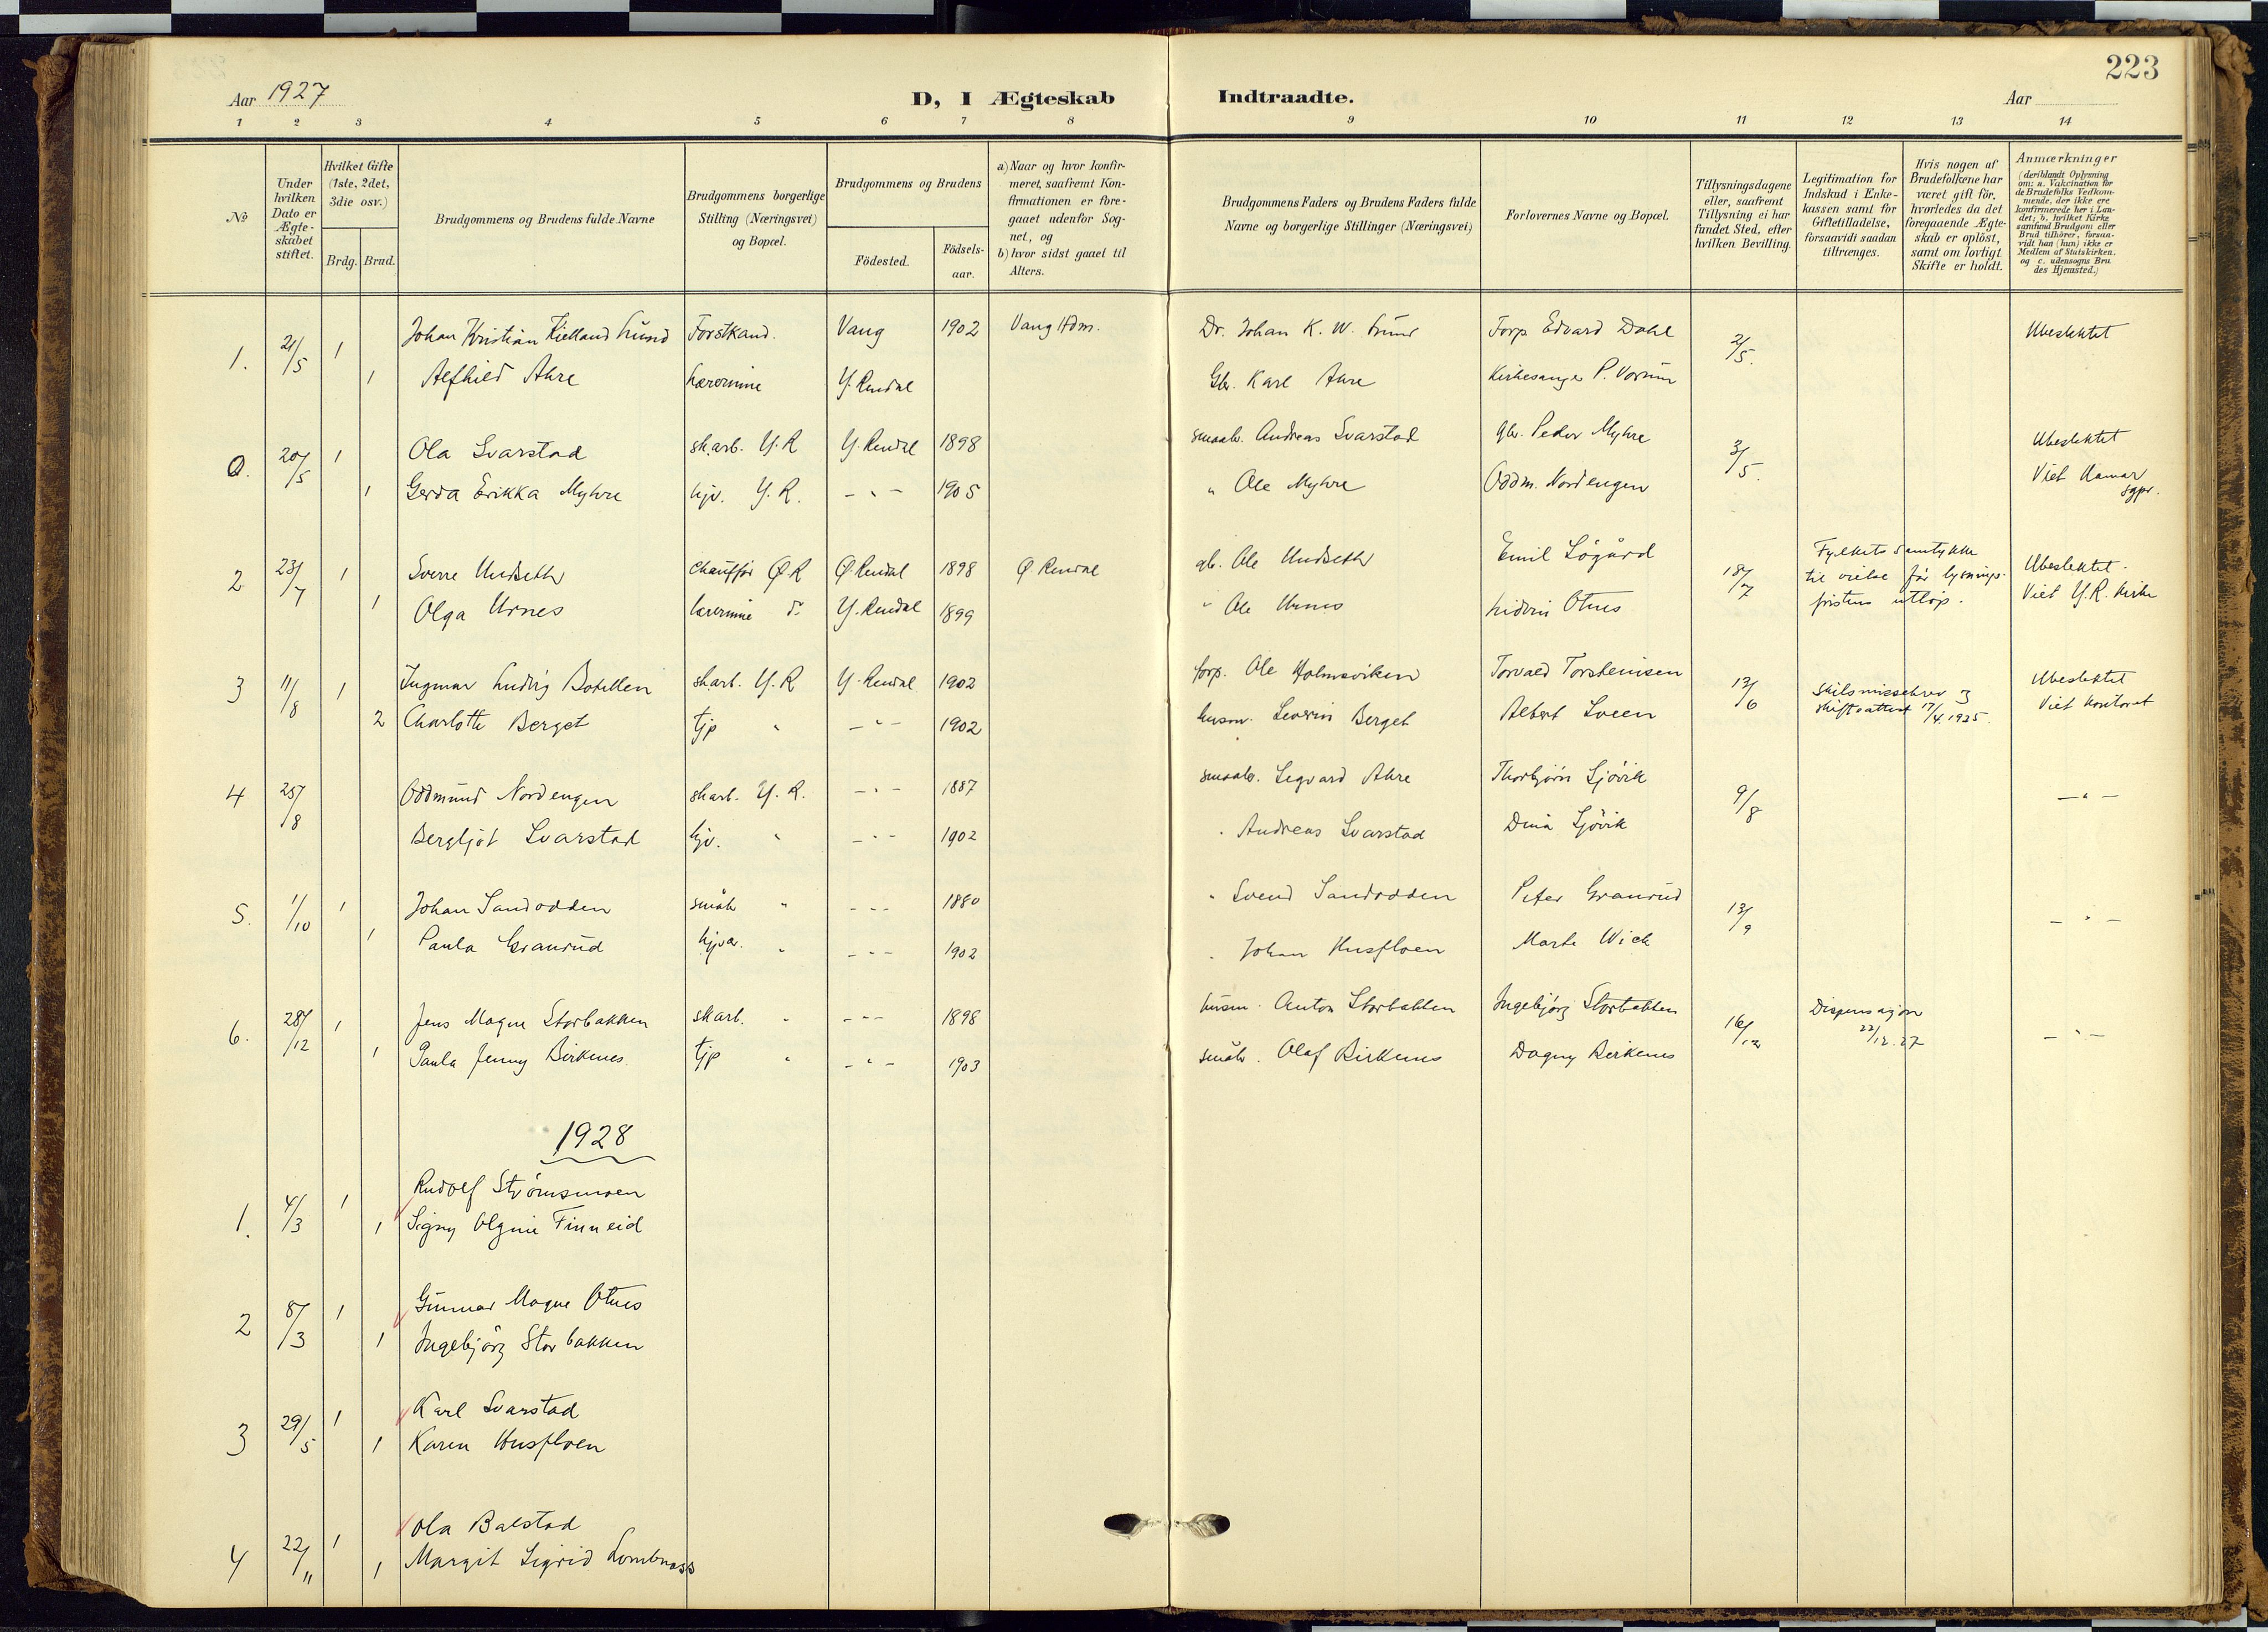 223
Aar 1927
D, I Ægteskab Indtraadte.
Aar
1 2 3 4 5 6 7 8 9 10 11 12 13 14
No
Under hvilken Dato er Ægte-skabet stiftet.
Hvilket Gifte (1ste, 2det, 3die osv.)
Brdg. Brud.
Brudgommens og Brudens fulde Navne
Brudgommens borgerlige Stilling (Næringsvei) og Bopæl.
Brudgommens og Brudens
Födested.
Födsels-aar.
a) Naar og hvor konfir-meret, saafremt Kon-firmationen er fore-gaaet udenfor Sog-net, og
b) hvor sidst gaaet til Alters.
Brudgommens Faders og Brudens Faders fulde Navne og borgerlige Stillinger (Næringsvei)
Forlovernes Navne og Bopæl.
Tillysningsdagene eller, saafremt Tillysning ei har fundet Sted, efter hvilken Bevilling.
Legitimation for Indskud i Enke-kassen samt for Giftetilladelse, forsaavidt saadan tiltrænges.
Hvis nogen af Brudefolkene har været gift för, hvorledes da det foregaaende Ægte-skab er oplöst, samt om lovligt Skifte er holdt.
Anmærkninger (deriblandt Oplysning om: a. Vakcination for de Brudefolks Vedkom-mende, der ikke ere konfirmerede her i Lan-det; b. hvilket Kirke samfund Brudgom eller Brud tilhörer, forsaa-vidt han (hun) ikke er Medlem af Statskirken. og c. udensogns Bru des Hjemsted.)
1. 21/5 1 Johan Kristian Kielland Lund Forstkand. Vang 1902 Vang Hdm. Dr. Johan K. W. Lund Forp. Edvard Dahl 2/5. Ubeslektet
1 Alfhild Akre Lærerinne Y. Rendal Gbr. Karl Akre Kirkesanger P. Vorum
0. 20/5 1 Ola Svarstad sk.arb. Y. R Y. Rendal 1898 smaabr. Andreas Svarstad gbr. Peder Myhre 3/5. Ubeslektet
1 Gerda Erikka Myhre hjv. Y. R. - " - 1905 " Ole Myhre Oddm. Nordengen Viet Hamar sgpr.
2 23/7 1 Sverre Undseth chauffør Ø R Ø. Rendal 1898 Ø. Rendal gb. Ole Undseth Emil Løgård 18/7 Fylkets samtykke til vielse før lysnings-fristens utløp. Ubeslektet.
1 Olga Urnes lærerinne d. Y. Rendal 1899 " Ole Urnes Otnes Viet Y. R. kirke
3 11/8 1 Ingmar Ludvig Bolellen skarb. Y. R Y. Rendal 1902 forp. Ole Holmsviken Torvald Torsteinsen 13/6 skilsmissebrev og skifteattest 17/4 1925. Ubeslektet
2 Charlotte Berget tjp " - " - 1902 husm. Severin Berget Albert Sveen Viet kontoret
4 25/8 Oddmund Nordengen skarb. Y. R. - " - 1887 smaabr. Segvard Akre Thorbjørn Sjøvik 9/8 - " -
Bergljot Svarstad hjv. " - " - 1902 " Andreas Svarstad Dina Sjøvik
5. 1/10 1 Johan Sandodden småbr " - " - 1880 " Svend Sandodden Peter Granrud 13/9 - " -
1 Paula Granrud hjva. " - " - 1902 " Johan Husfloen Marte Wick
6. 28/12 1 Jens Magne Storbakken skarb. " - " - 1898 husm. Anton Storbakken Ingebjørg Storbakken 16/12 Dispensasjon 22/12.27 - " -
1 Paula Jenny Birkenes tjp " - " - 1903 småbr. Olaf Birkenes Dagny Birkenes
1928
1. 4/3 1 Rudolf Strømsmoen
1 Signy Olgine Finneid
2 8/3 1 Gunnar Magne Otnes
1 Ingebjørg Storbakken
3 29/5 1 Karl Svarstad
1 Karen Husfloen
4 22/11 1 Ola Balstad
1 Margit Sigrid Lombnæss